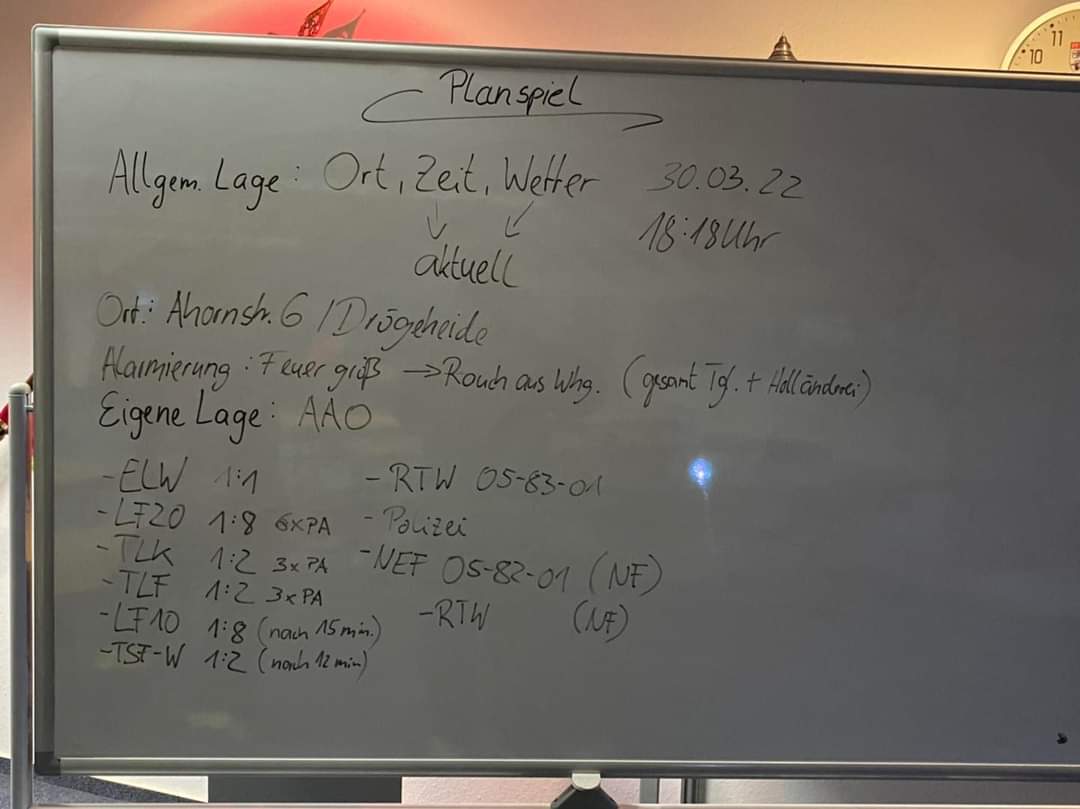 Planspiel
Allgem. Lage: Ort, Zeit, Wetter 30.03.22
18:18 Uhr
aktuell
Ort.: Ahornstr. 6 / Drögeheide
Alarmierung: Feuer groß → Rauch aus Whg. (gesamt Tgl. + Holländerei)
Eigene Lage: AAO
-ELW 1:1 - RTW 05-83-01
-LF20 1:8 6xPA - Polizei
-TLK 1:2 3xPA -NEF 05-82-01 (NF)
-TLF 1:2 3xPA
-LF10 1:8 (nach 15min.) -RTW (NF)
-TSF-W 1:2 (nach 12min)
11
10